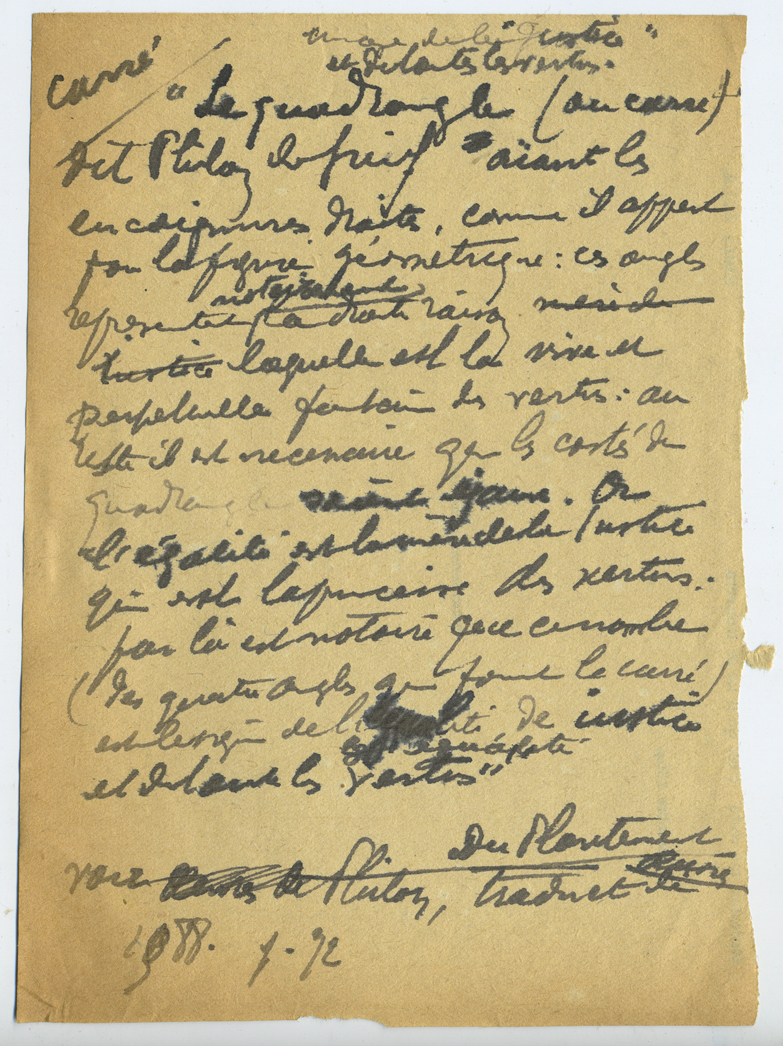 image de la Justice"
et de toutes les vertus.
carré
"Le quadrangle (ou carré)
dit Philon le juif "aiant les
encoignures droites, comme il appert
par la figure géometrique: ces angles
notoirement
representent la droite raison
Justice laquelle est la vive et
perpetuelle fontaine des vertus: au
reste il est necessaire que les costés du
quadrangle soient égaux. Or
l'égalité est la mère de la Justice
qui est la princesse des vertus:
par là est notoire que ce nombre
(des quatre angles qui font le carré)
est le signe de l' de justice
et equalité
et de toutes les vertus"
Du Plantement
voir Œuvres de Philon, traduct de
1588. f. 72